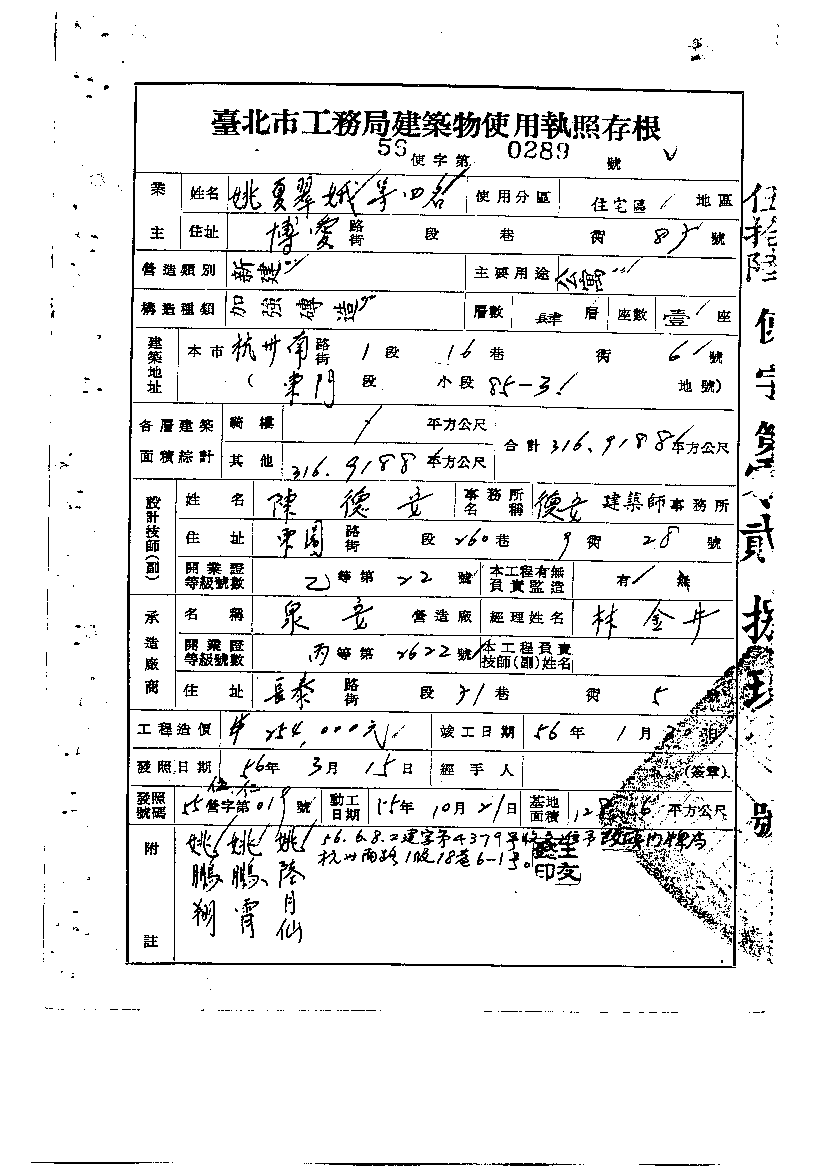 臺北市工務局建築物使用執照存根
56 使字第 0289 號
業主 姓名 姚夏翠娥等四名 使用分區 住宅區 地區
住址 博愛 路街 段 巷 衖 號
營造類別 新建 主要用途 公寓
構造種類 加強磚造 層數 肆 層 座數 壹 座
建築地址 本市 杭州南 路街 1 段 16 巷 衖 6 號
( 東門 段 小段 85-3 地號)
各層建築面積綜計 騎樓 平方公尺 合計 316.91886 平方公尺
其他 316.91886 平方公尺
設計技師(副) 姓名 陳德 事務所名稱 德 建築師事務所
住址 東園 路街 段 260 巷 9 衖 28 號
開業證等級號數 乙 等第 22 號 本工程有無負責監造 有 無
承造廠商 名稱 泉 營造廠 經理姓名 林金
開業證等級號數 丙 等第 2622 號 本工程負責技師(副)姓名
住址 長泰 路街 段 31 巷 衖 5
工程造價 254,000元 竣工日期 56 年 1 月 日
發照日期 56 年 3 月 15 日 經手人 (簽章)
發照號碼 55 營字第 019 號 動工日期 55 年 10 月 21 日 基地面積 平方公尺
附註 姚鵬翔 姚鵬霄 姚陸月仙
56.6.8.2建字第4379號
杭州南路1段18巷6-1號。
伍拾陸使字第 貳捌 號